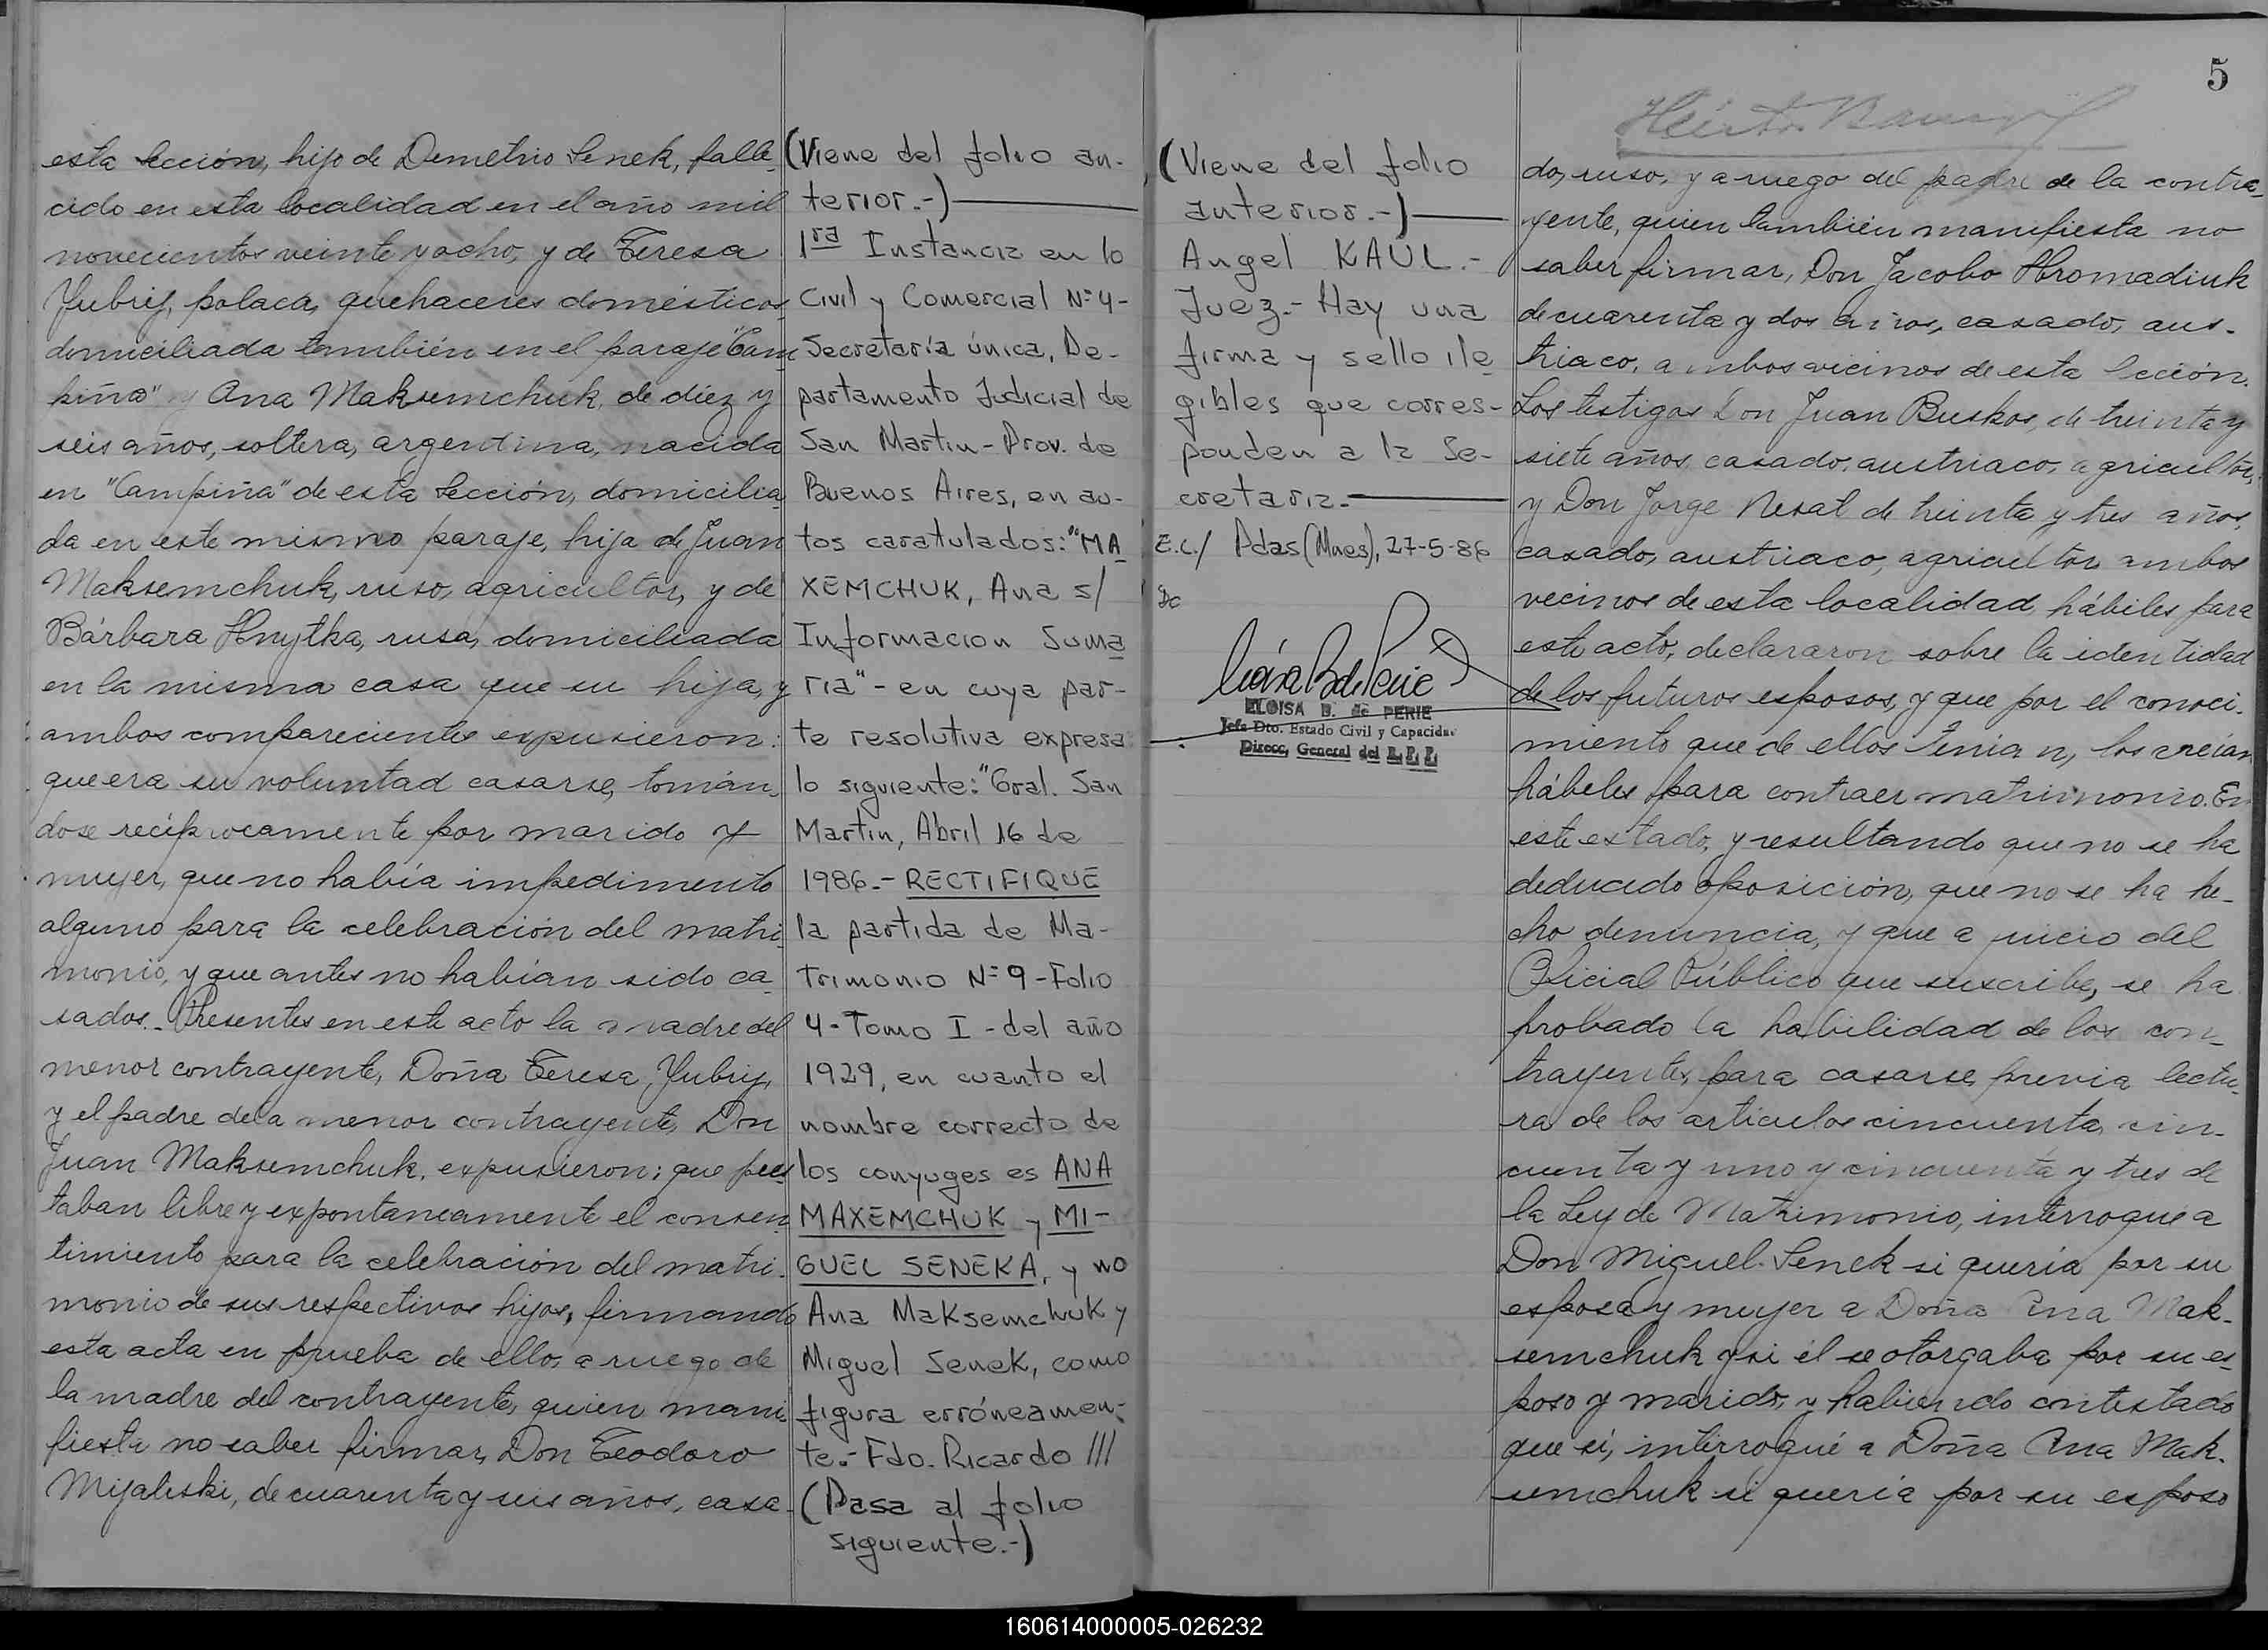 esta Sección, hijo de Demetrio Senek, falle-
cido en esta localidad en el año mil
novecientos veinte y ocho, y de Teresa
Yubrij, polaca, quehaceres domésticos
domiciliada también en el paraje "Cam
piña" y Ana Maksemchuk, de diez y
seis años, soltera, argentina, nacida
en "Campiña" de esta Sección, domicilia-
da en este mismo paraje, hija de Juan
Maksemchuk, ruso, agricultor, y de
Bárbara Hnytka, rusa, domiciliada
en la misma casa que su hija, y
ambos comparecientes expusieron:
que era su voluntad casarse, tomán-
dose recíprocamente por marido y
mujer, que no había impedimento
alguno para la celebración del matri-
monio, y que antes no habían sido ca-
sados. Presentes en este acto la madre del
menor contrayente, Doña Teresa Yubrij,
y el padre de la menor contrayente, Don
Juan Maksemchuk, expusieron: que pres
taban libre y expontaneamente el consen
timiento para la celebración del matri-
monio de sus respectivos hijos, firmando
esta acta en prueba de ello, a ruego de
la madre del contrayente, quien mani
fiesta no saber firmar, Don Teodoro
Mijaliski, de cuarenta y seis años, casa-
(Viene del folio an-
terior.-)
1ra Instancia en lo
Civil y Comercial Nº4-
Secretaría única, De-
partamento Judicial de
San Martín - Prov. de
Buenos Aires, en au-
tos caratulados: "MA
XEMCHUK, Ana s/
Informacion Suma
ria" - en cuya par-
te resolutiva expresa
lo siguiente: "Gral. San
Martín, Abril 16 de
1986.- RECTIFIQUE
la partida de Ma-
trimonio Nº9 - Folio
4 - Tomo I - del año
1929, en cuanto el
nombre correcto de
los conyuges es ANA
MAXEMCHUK y MI-
GUEL SENEKA, y no
Ana Maksemchuk y
Miguel Senek, como
figura erróneamen-
te.- Fdo. Ricardo ///
(Pasa al folio
siguiente.-)
(Viene del folio
anterior.-)
Angel KAUL.-
Juez.- Hay una
firma y sello ile
gibles que corres-
ponden a la Se-
cretaria.-
E.C./ Pdas (Mnes), 27-5-86
ELOISA B. de PERIE
Jefe Dto. Estado Civil y Capacidad
Direcc. General del
5
do, ruso, y a ruego del padre de la contra-
yente, quien también manifiesta no
saber firmar, Don Jacobo Hromadiuk
de cuarenta y dos años, casado, aus-
triaco, ambos vecinos de esta Sección.
Los testigos Don Juan Buskos, de treinta y
siete años, casado, austriaco, agricultor,
y Don Jorge Nesat de treinta y tres años,
casado, austriaco, agricultor ambos
vecinos de esta localidad, hábiles para
este acto, declararon sobre la identidad
de los futuros esposos, y que por el conoci-
miento que de ellos tenían, los creían
hábeles para contraer matrimonio. En
este estado, y resultando que no se ha
deducido oposición, que no se ha he-
cho denuncia, y que a juicio del
Oficial Público que suscribe, se ha
probado la habilidad de los con-
trayentes, para casarse, previa lectu-
ra de los artículos cincuenta, cin-
cuenta y uno y cincuenta y tres de
la Ley de Matrimonio, interrogué a
Don Miguel Senek si quería por su
esposa y mujer a Doña Ana Mak-
semchuk y si él se otorgaba por su es-
poso y marido, y habiendo contestado
que sí, interrogué a Doña Ana Mak-
semchuk si quería por su esposo
160614000005-026232